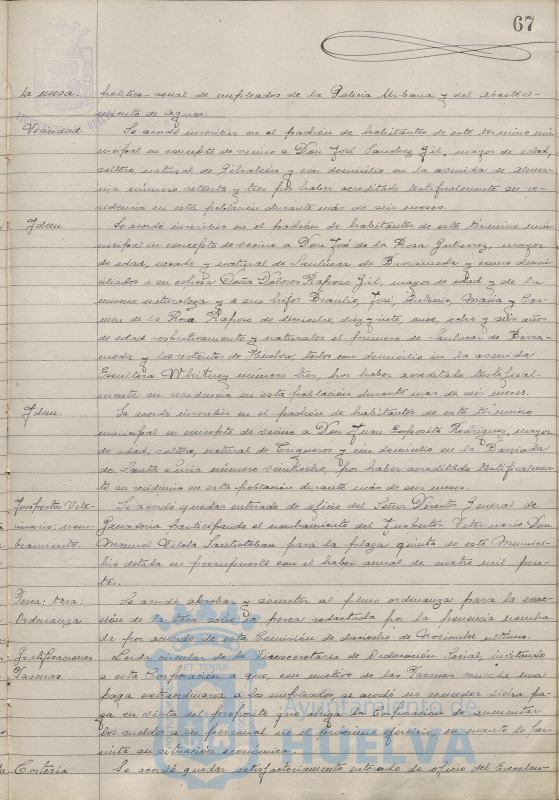 67
la mesa. político-social de empleados de la Policia Urbana y del abasteci-
miento de aguas.
Vecindad Se acordó inscribir en el padrón de habitantes de este término mu-
nicipal en concepto de vecino a Don José Sanchez Gil, mayor de edad,
soltero, natural de Gibraleón y con domicilio en la avenida de Alema-
nia número setenta y tres por haber acreditado testificalmente su re-
sidencia en esta población durante más de seis meses.
Idem. Se acordó inscribir en el padrón de habitantes de este término mu-
nicipal en concepto de vecino a Don José de la Rosa Gutierrez, mayor
de edad, casado y natural de Sanlúcar de Barrameda y como domi-
ciliados a su esposa Doña Dolores Raposo Gil, mayor de edad y de la
misma naturaleza y a sus hijos Braulio, José, Antonio, Maria y Car-
men de la Rosa Raposo de dieciocho, diez y siete, once, ocho y seis años
de edad respectivamente y naturales el primero de Sanlucar de Barra-
meda y los restantes de Huelva, todos con domicilio en la avenida
Escultora Whitney número tres, por haber acreditado testifical-
mente su residencia en esta población durante mas de seis meses.
Idem. Se acordó inscribir en el padrón de habitantes de este término
municipal en concepto de vecino a Don Juan Exposito Rodriguez, mayor
de edad, soltero, natural de Trigueros y con domicilio en la Barriada
de Santa Lucia número veintiocho, por haber acreditado testificalmen-
te su residencia en esta población durante más de seis meses.
Inspector Vete- Se acordó quedar enterado de oficio del Señor Director General de
rinario: nom- Ganaderia participando el nombramiento del Inspector Veterinario Don
bramiento. Manuel Vilola Santisteban para la plaza quinta de este Munici-
pio dotada en presupuesto con el haber anual de cuatro mil pese-
tas.
Pesca: tasa: Se acordó aprobar y someter al pleno ordenanza para la exac-
Ordenanza ción de la tasa sobre la pesca redactada por la ponencia nombra-
da por acuerdo de esta Comisión de dieciocho de Noviembre último.
Gratificaciones Leida circular de la Vicesecretaria de Ordenación Social, invitando
Pascuas. a esta Corporación a que, con motivo de las Pascuas conceda una
paga extraordinaria a los empleados, se acordó no conceder dicha pa-
ga en vista del propósito que abriga la Corporación de aumentar
los sueldos a su personal en el próximo ejercicio en cuanto lo per-
mita su situación económica.
Cortesia Se acordó quedar satisfactoriamente enterado de oficio del Excelen-
Ayuntamiento de
HUELVA